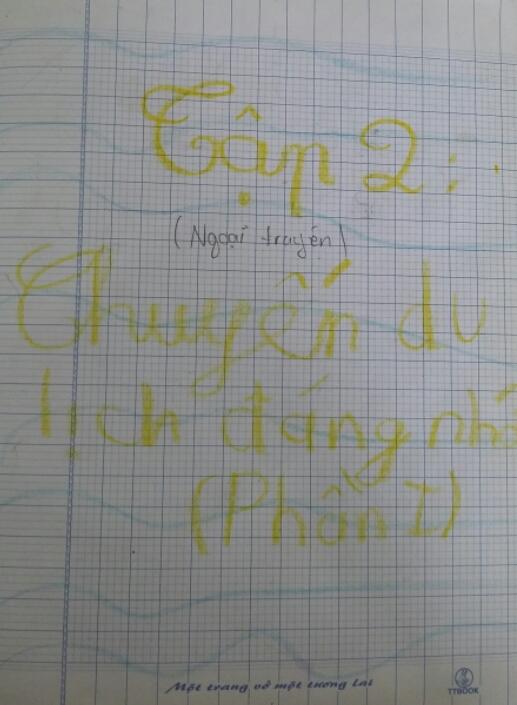 Tập 2:
(Ngoại truyện)
Chuyến du
lịch đáng nhớ
(Phần I)
Một trang vở một tương lai
TTBOOK